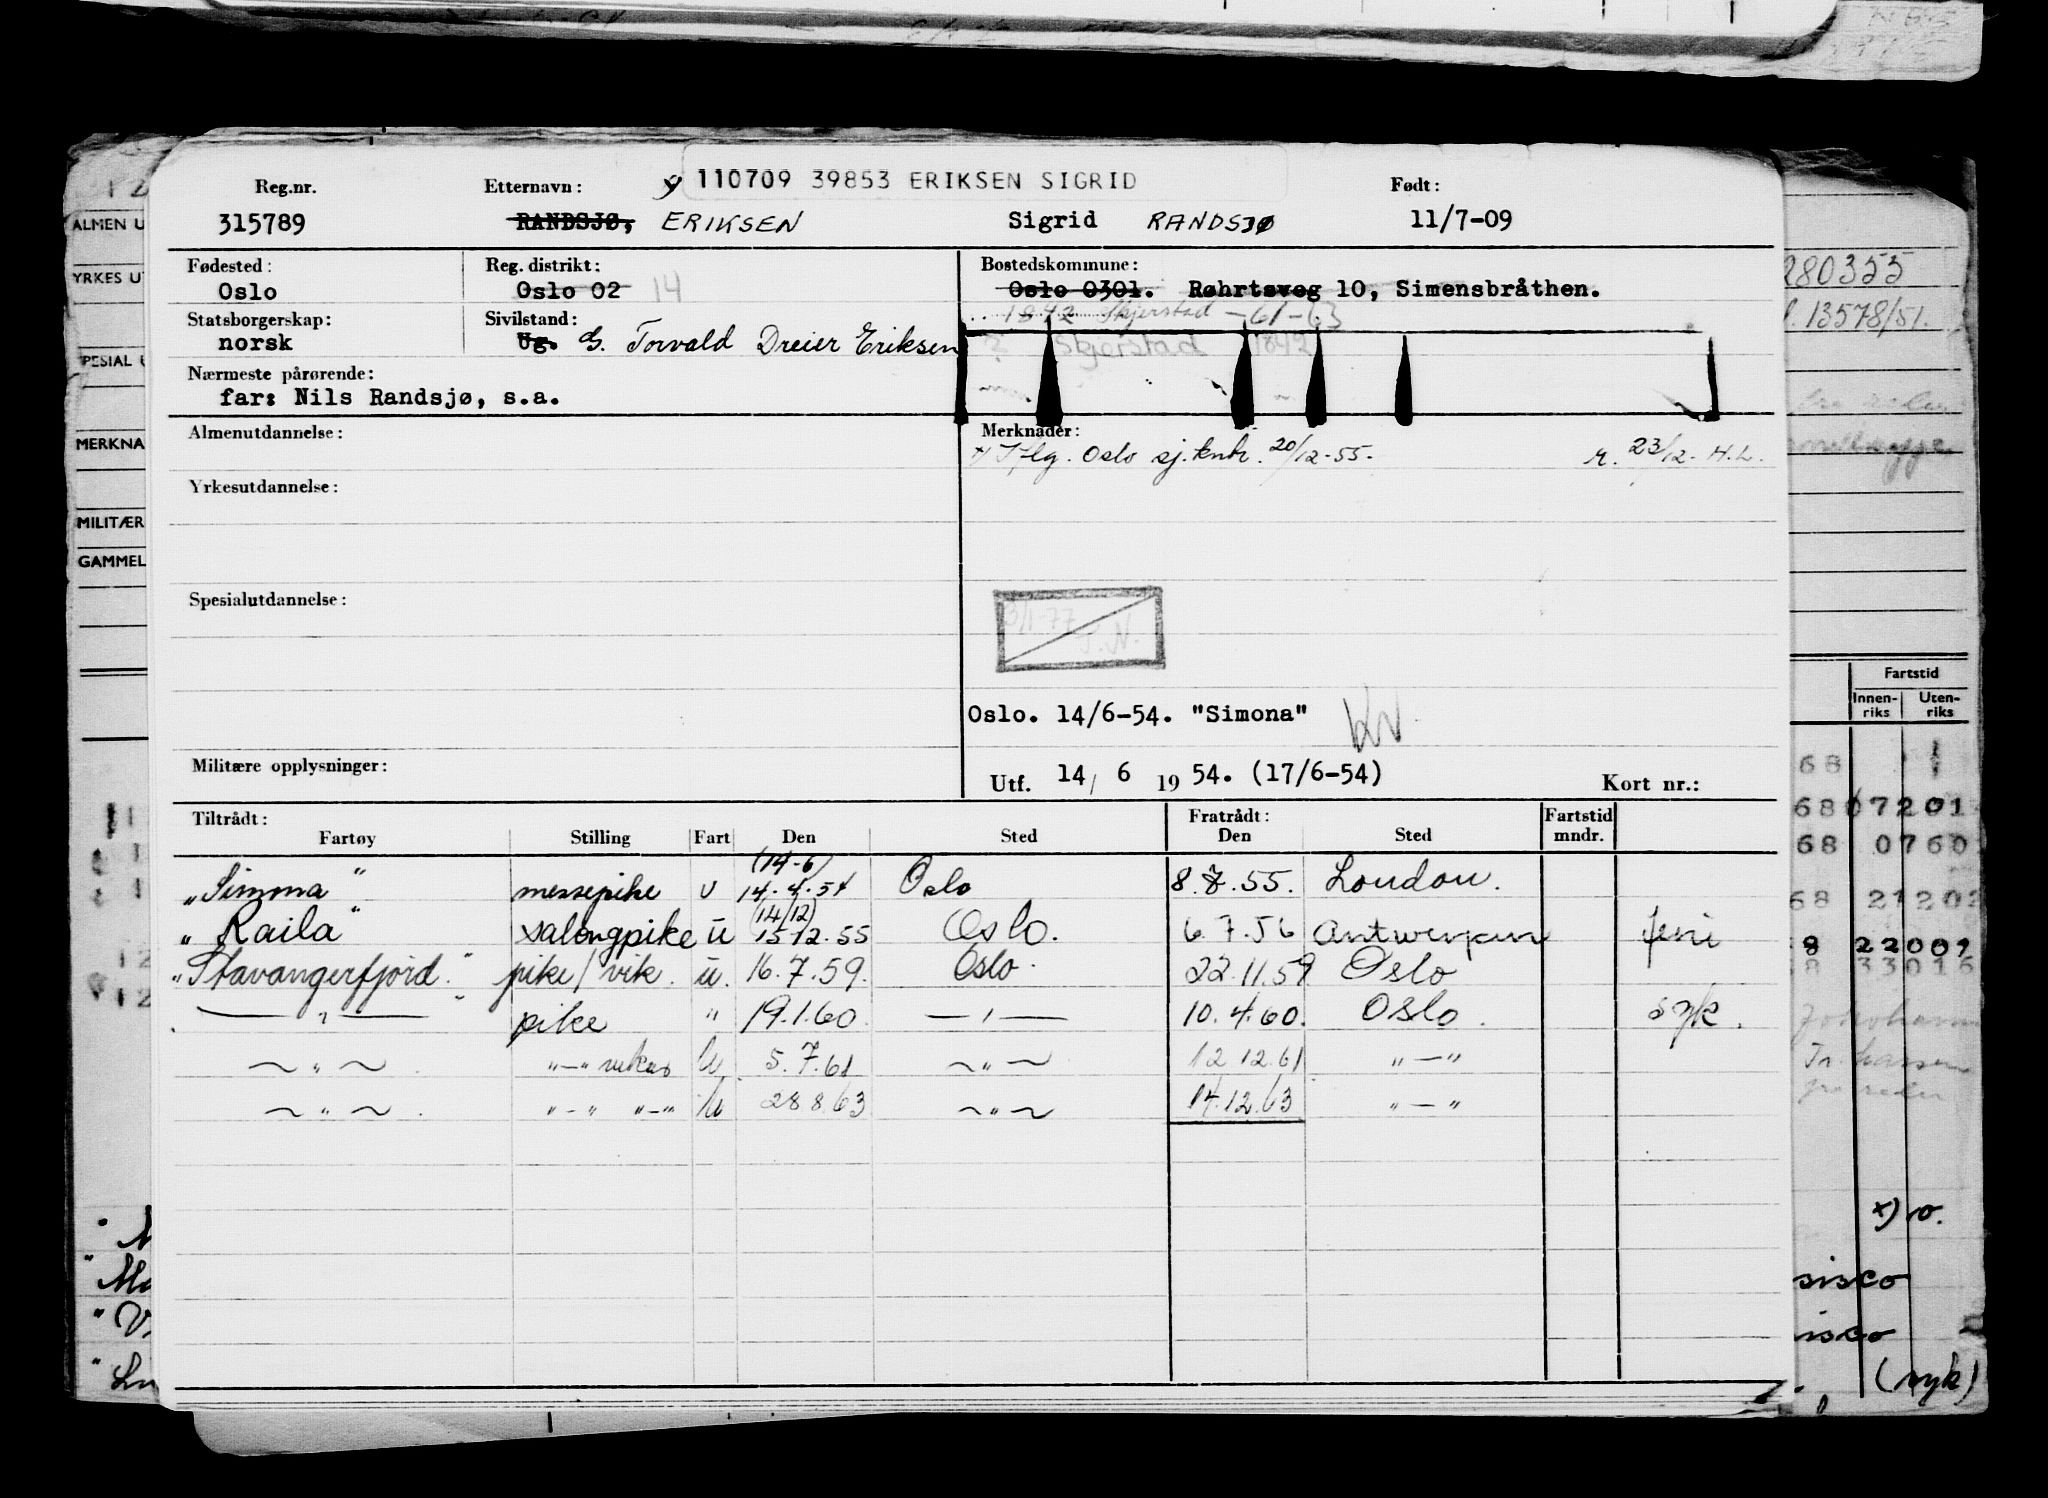 Reg.nr. Etternavn: 110709 39853 ERIKSEN SIGRID Født:
315789 RANDSJØ, ERIKSEN Sigrid RANDSJØ 11/7-09
Fødested: Reg. distrikt: Bostedskommune:
Oslo Oslo 02 14 Oslo 0301. Røhrtsveg 10, Simensbråthen.
Statsborgerskap: Sivilstand: 1842 Skjerstad -61-63
norsk Ug. G. Torvald Dreier Eriksen Skjerstad 1842
Nærmeste pårørende:
far: Nils Randsjø, s.a.
Almenutdannelse: Merknader:
Iflg. Oslo sj.kntr. 20/12-55- r. 23/12- H.L.
Yrkesutdannelse:
Spesialutdannelse:
3/1-77
T.N.
Oslo. 14/6-54. "Simona"
Militære opplysninger: Utf. 14/ 6 19 54. (17/6-54) Kort nr.:
Tiltrådt: Fratrådt: Fartstid
Fartøy Stilling Fart Den Sted Den Sted mndr.
(14-6)
"Simona" messepike u 14.4.54 Oslo 8.7.55. London.
(14/12)
"Raila" salongpike u 15 12.55 Oslo. 6 7.56 Antwerpen feri
"Stavangerfjord." pike/vik. u. 16.7.59. Oslo. 22.11.59 Oslo
— " — pike " 19.1.60. — " — 10.4.60. Oslo. syk.
~ " ~ "—" vikar U 5.7.61 ~ " ~ 12 12.61 " — "
~ " ~ "—" "—" U 28 8.63 ~ " ~ 14.12.63 " — "
ALMEN U
YRKES UT
SPESIAL U
MERKNA
MILITÆR
GAMMEL
280355
13578/51.
Fartstid
Innen-riks Uten-riks
68
68 07201
68 0760
68 21202
8 22009
8 33016
x) v.
sisco
isco
(syk)